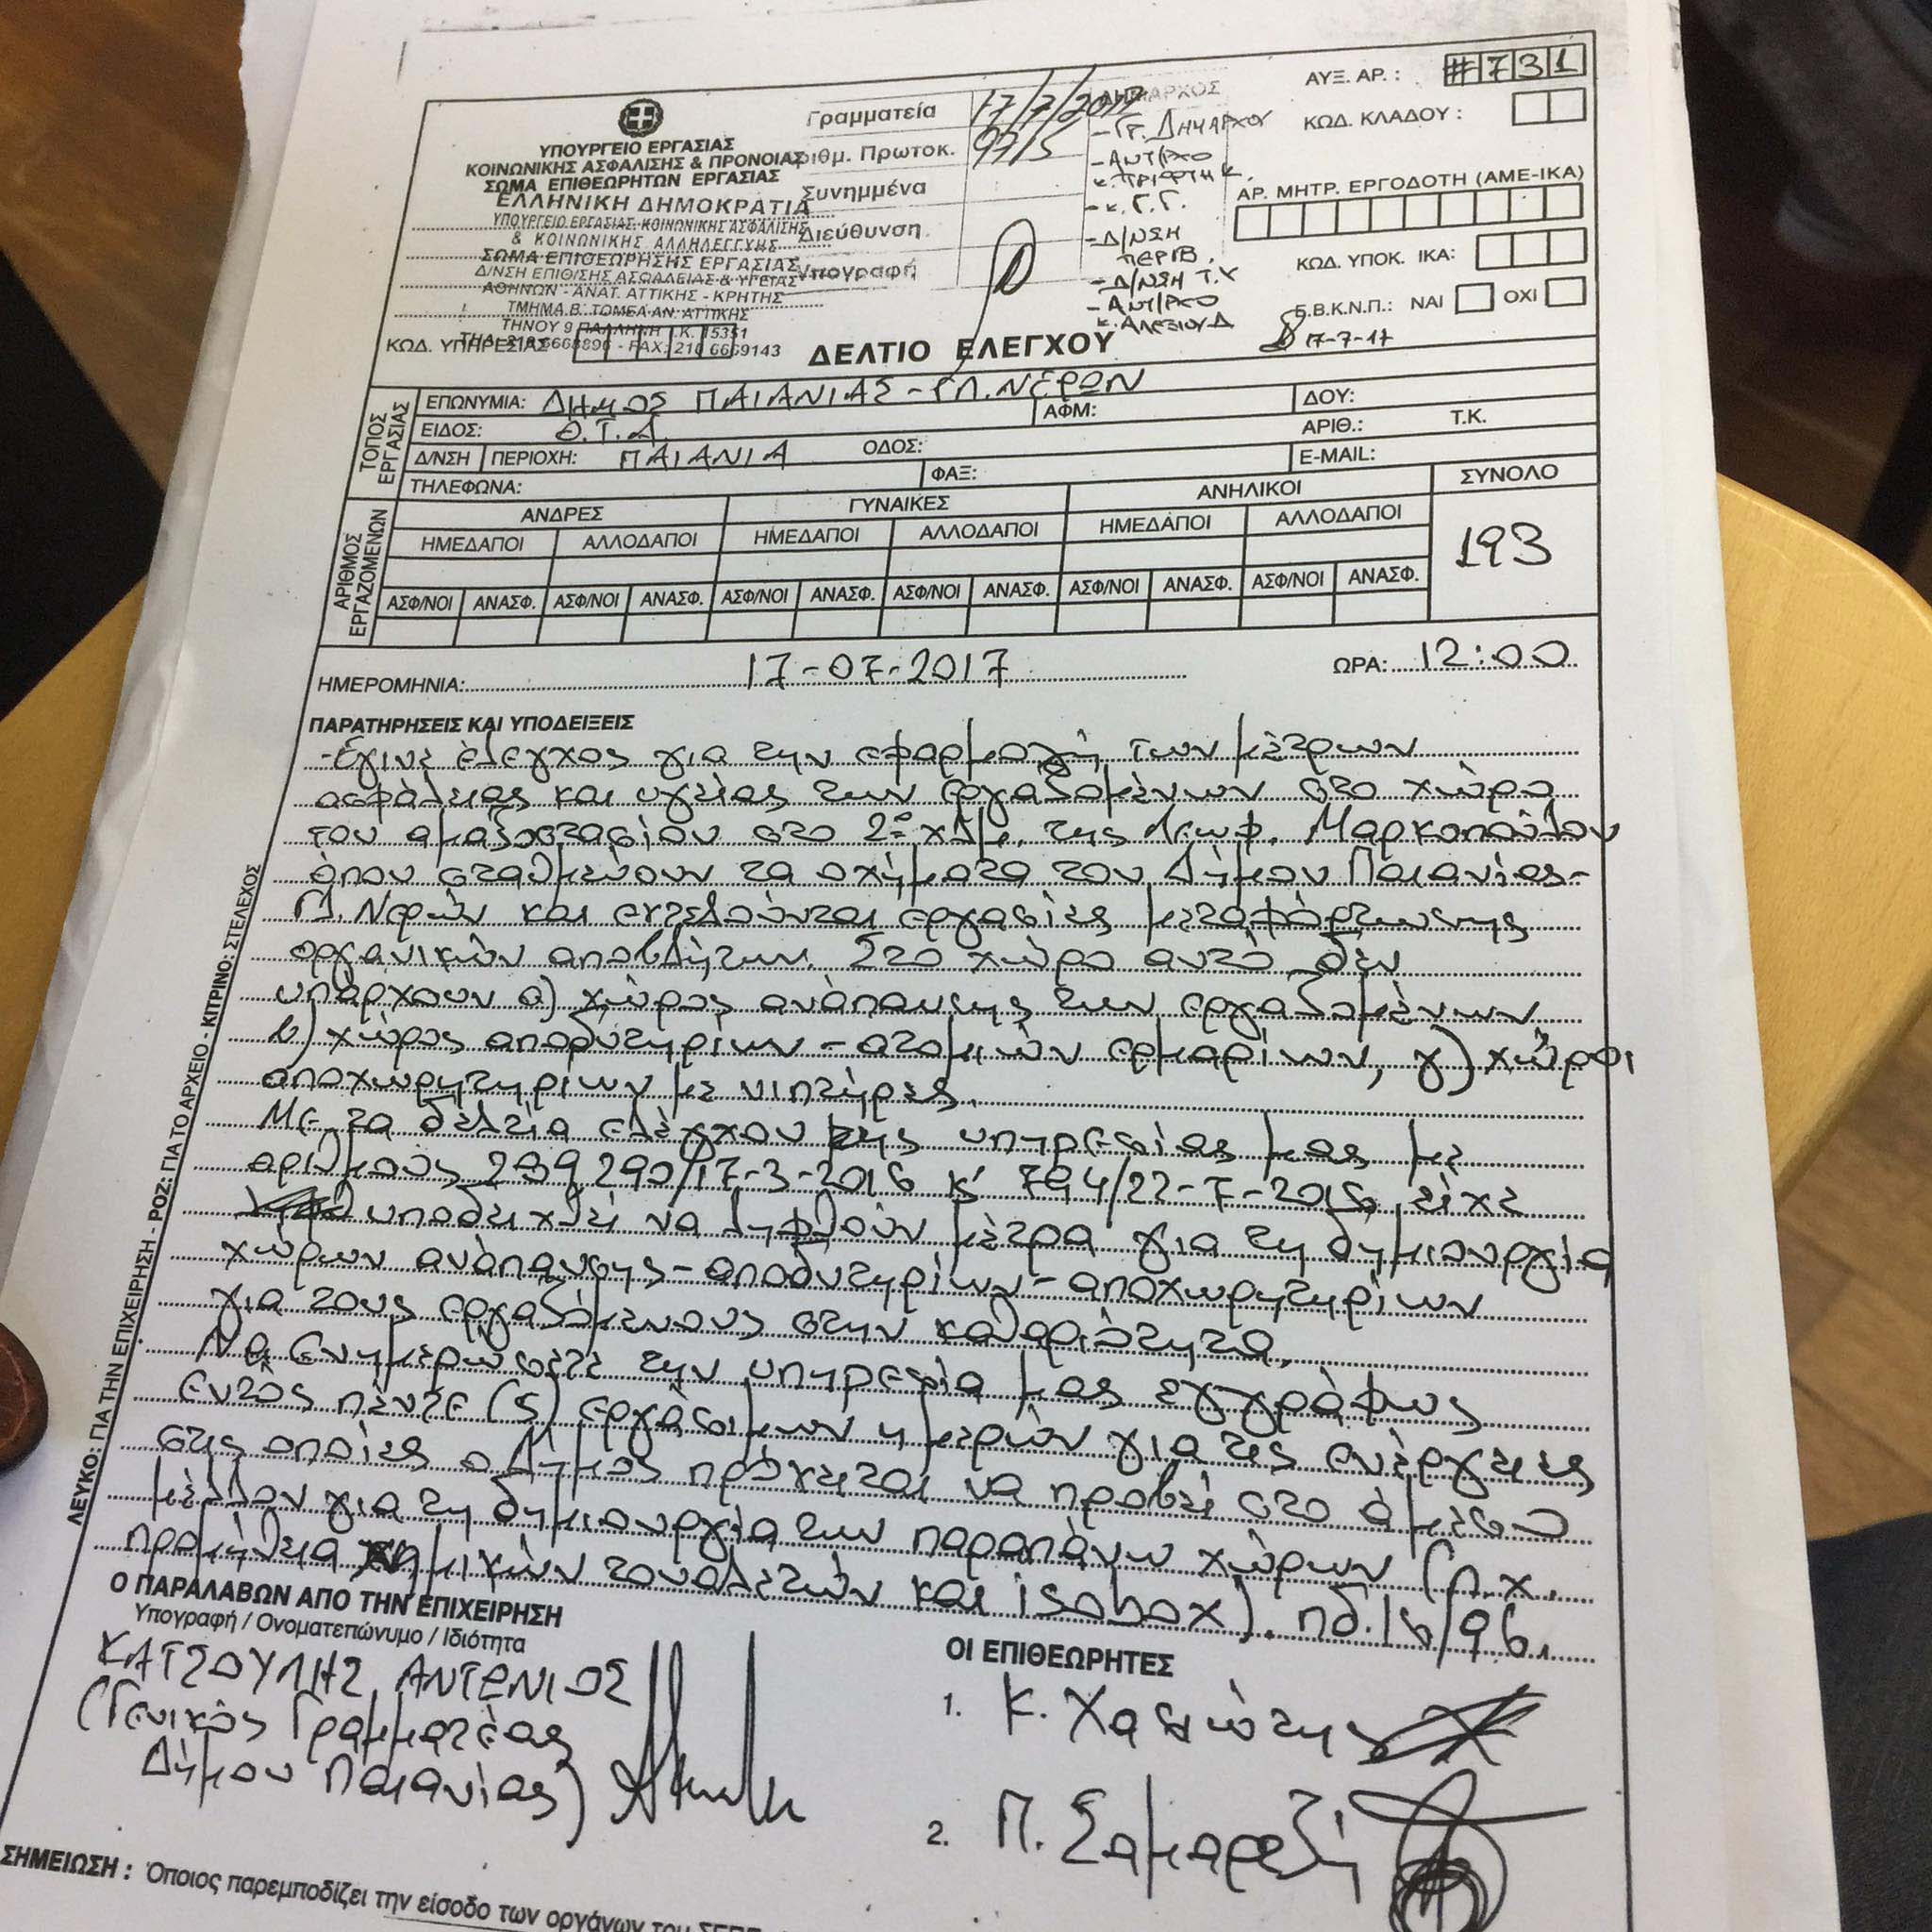 ΥΠΟΥΡΓΕΙΟ ΕΡΓΑΣΙΑΣ
ΚΟΙΝΩΝΙΚΗΣ ΑΣΦΑΛΙΣΗΣ & ΠΡΟΝΟΙΑΣ
ΣΩΜΑ ΕΠΙΘΕΩΡΗΤΩΝ ΕΡΓΑΣΙΑΣ
ΕΛΛΗΝΙΚΗ ΔΗΜΟΚΡΑΤΙΑ
ΥΠΟΥΡΓΕΙΟ ΕΡΓΑΣΙΑΣ, ΚΟΙΝΩΝΙΚΗΣ ΑΣΦΑΛΙΣΗΣ
& ΚΟΙΝΩΝΙΚΗΣ ΑΛΛΗΛΕΓΓΥΗΣ
ΣΩΜΑ ΕΠΙΘΕΩΡΗΣΗΣ ΕΡΓΑΣΙΑΣ
Δ/ΝΣΗ ΕΠΙΘ/ΣΗΣ ΑΣΦΑΛΕΙΑΣ & ΥΓΕΙΑΣ
ΑΘΗΝΩΝ - ΑΝΑΤ. ΑΤΤΙΚΗΣ - ΚΡΗΤΗΣ
ΤΜΗΜΑ Β΄ ΤΟΜΕΑ ΑΝ. ΑΤΤΙΚΗΣ
ΤΗΝΟΥ 9 ΠΑΛΛΗΝΗ Τ.Κ. 15351
ΚΩΔ. ΥΠΗΡΕΣΙΑΣ
- FAX: 210 6669143
Γραμματεία 17/7/2017
Αριθμ. Πρωτοκ.
Συνημμένα
Διεύθυνση
Υπογραφή
ΔΗΜΑΡΧΟΣ
- ΓΡ. ΔΗΜΑΡΧΟΥ
- ΑΝΤ/ΡΧΟ
- κ. Γ.Γ.
- Δ/ΝΣΗ
ΠΕΡΙΒ.
- Δ/ΝΣΗ Τ.Υ
- ΑΝΤ/ΡΧΟ
κ. ΑΛΕΞΙΟΥ Δ
ΑΥΞ. ΑΡ. : #731
ΚΩΔ. ΚΛΑΔΟΥ :
ΑΡ. ΜΗΤΡ. ΕΡΓΟΔΟΤΗ (ΑΜΕ-ΙΚΑ)
ΚΩΔ. ΥΠΟΚ. ΙΚΑ:
Ε.Β.Κ.Ν.Π.: ΝΑΙ ΟΧΙ
17-7-17
ΔΕΛΤΙΟ ΕΛΕΓΧΟΥ
ΤΟΠΟΣ ΕΡΓΑΣΙΑΣ
ΕΠΩΝΥΜΙΑ: ΔΗΜΟΣ ΠΑΙΑΝΙΑΣ - ΓΛ. ΝΕΡΩΝ
ΑΦΜ: ΔΟΥ:
ΕΙΔΟΣ: Ο.Τ.Α.
Δ/ΝΣΗ ΠΕΡΙΟΧΗ: ΠΑΙΑΝΙΑ ΟΔΟΣ: ΑΡΙΘ.: Τ.Κ.
ΤΗΛΕΦΩΝΑ: ΦΑΞ: E-MAIL:
ΑΡΙΘΜΟΣ ΕΡΓΑΖΟΜΕΝΩΝ
ΑΝΔΡΕΣ ΓΥΝΑΙΚΕΣ ΑΝΗΛΙΚΟΙ ΣΥΝΟΛΟ
ΗΜΕΔΑΠΟΙ ΑΛΛΟΔΑΠΟΙ ΗΜΕΔΑΠΟΙ ΑΛΛΟΔΑΠΟΙ ΗΜΕΔΑΠΟΙ ΑΛΛΟΔΑΠΟΙ 193
ΑΣΦ/ΝΟΙ ΑΝΑΣΦ. ΑΣΦ/ΝΟΙ ΑΝΑΣΦ. ΑΣΦ/ΝΟΙ ΑΝΑΣΦ. ΑΣΦ/ΝΟΙ ΑΝΑΣΦ. ΑΣΦ/ΝΟΙ ΑΝΑΣΦ. ΑΣΦ/ΝΟΙ ΑΝΑΣΦ.
ΗΜΕΡΟΜΗΝΙΑ: 17-07-2017 ΩΡΑ: 12:00
ΠΑΡΑΤΗΡΗΣΕΙΣ ΚΑΙ ΥΠΟΔΕΙΞΕΙΣ
-Έγινε έλεγχος για την εφαρμογή των μέτρων
ασφάλειας και υγείας των εργαζομένων στο χώρο
του αμαξοστασίου στο 2ο χλμ. της Λεωφ. Μαρκοπούλου
όπου σταθμεύουν τα οχήματα του Δήμου Παιανίας-
Γλ. Νερών και εκτελούνται εργασίες μεταφόρτωσης
οργανικών αποβλήτων. Στο χώρο αυτό δεν
υπάρχουν α) χώρος ανάπαυσης των εργαζομένων
β) χώρος αποδυτηρίων - ατομικών ερμαρίων, γ) χώροι
αποχωρητηρίων με νιπτήρες.
Με τα δελτία ελέγχου της υπηρεσίας μας με
αριθμούς 289, 290/17-3-2016 κ' 794/22-7-2016 είχε
υποδειχθεί να ληφθούν μέτρα για τη δημιουργία
χώρων ανάπαυσης - αποδυτηρίων - αποχωρητηρίων
για τους εργαζόμενους στην καθαριότητα.
Να ενημερώσετε την υπηρεσία μας εγγράφως
εντός πέντε (5) εργάσιμων ημερών για τις ενέργειες
στις οποίες ο Δήμος πρόκειται να προβεί στο άμεσο
μέλλον για τη δημιουργία των παραπάνω χώρων (π.χ.
προμήθεια χημικών τουαλετών και isobox). πδ. 16/96.
ΛΕΥΚΟ: ΓΙΑ ΤΗΝ ΕΠΙΧΕΙΡΗΣΗ - ΡΟΖ: ΓΙΑ ΤΟ ΑΡΧΕΙΟ - ΚΙΤΡΙΝΟ: ΣΤΕΛΕΧΟΣ
Ο ΠΑΡΑΛΑΒΩΝ ΑΠΟ ΤΗΝ ΕΠΙΧΕΙΡΗΣΗ
Υπογραφή / Ονοματεπώνυμο / Ιδιότητα
ΚΑΤΣΟΥΛΗΣ ΑΝΤΩΝΙΟΣ
(Γενικός Γραμματέας
Δήμου Παιανίας)
ΟΙ ΕΠΙΘΕΩΡΗΤΕΣ
1. Κ. Χασιώτης
2. Π. Σαμαρτζή
ΣΗΜΕΙΩΣΗ : Όποιος παρεμποδίζει την είσοδο των οργάνων του ΣΕΠΕ